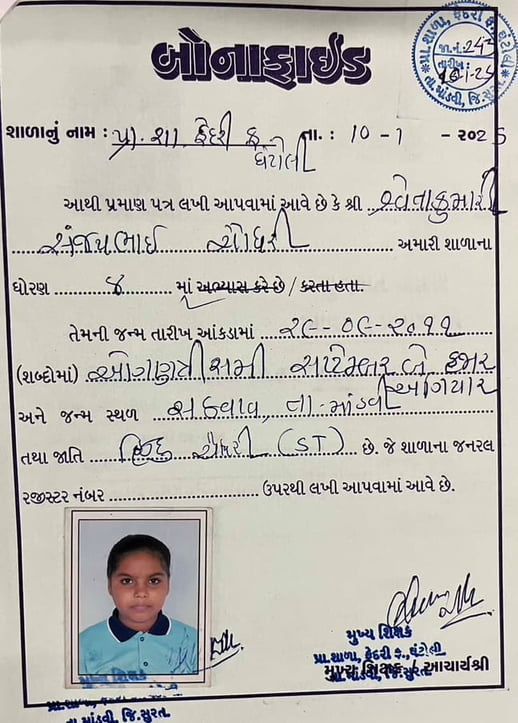 બોનાફાઈડ
જા.નં. 243
તા.માંડવી, જિ.સુરત
શાળાનું નામ : પ્રા. શા ફેદરી ફ. તા. : 10 -1 - ૨૦25
ઘંટોલી
આથી પ્રમાણ પત્ર લખી આપવામાં આવે છે કે શ્રી શ્વેતાકુમારી
સંજયભાઈ ચૌધરી અમારી શાળાના
ધોરણ ૪ માં અભ્યાસ કરે છે / કરતા હતા.
તેમની જન્મ તારીખ આંકડામાં ૨૯-૦૯-૨૦૧૧
(શબ્દોમાં) ઓગણત્રીસમી સપ્ટેમ્બર બે હજાર
અગિયાર
અને જન્મ સ્થળ સઠવાવ, તા-માંડવી
તથા જાતિ હિન્દુ ચૌધરી (ST) છે. જે શાળાના જનરલ
રજીસ્ટર નંબર ઉપરથી લખી આપવામાં આવે છે.
મુખ્ય શિક્ષક
પ્રા.શાળા, ફેદરી ફ., ઘંટોલી
મુખ્ય શિક્ષક / આચાર્યશ્રી
તા.માંડવી, જિ.સુરત
મુખ્ય શિક્ષક
તા.માંડવી, જિ.સુરત